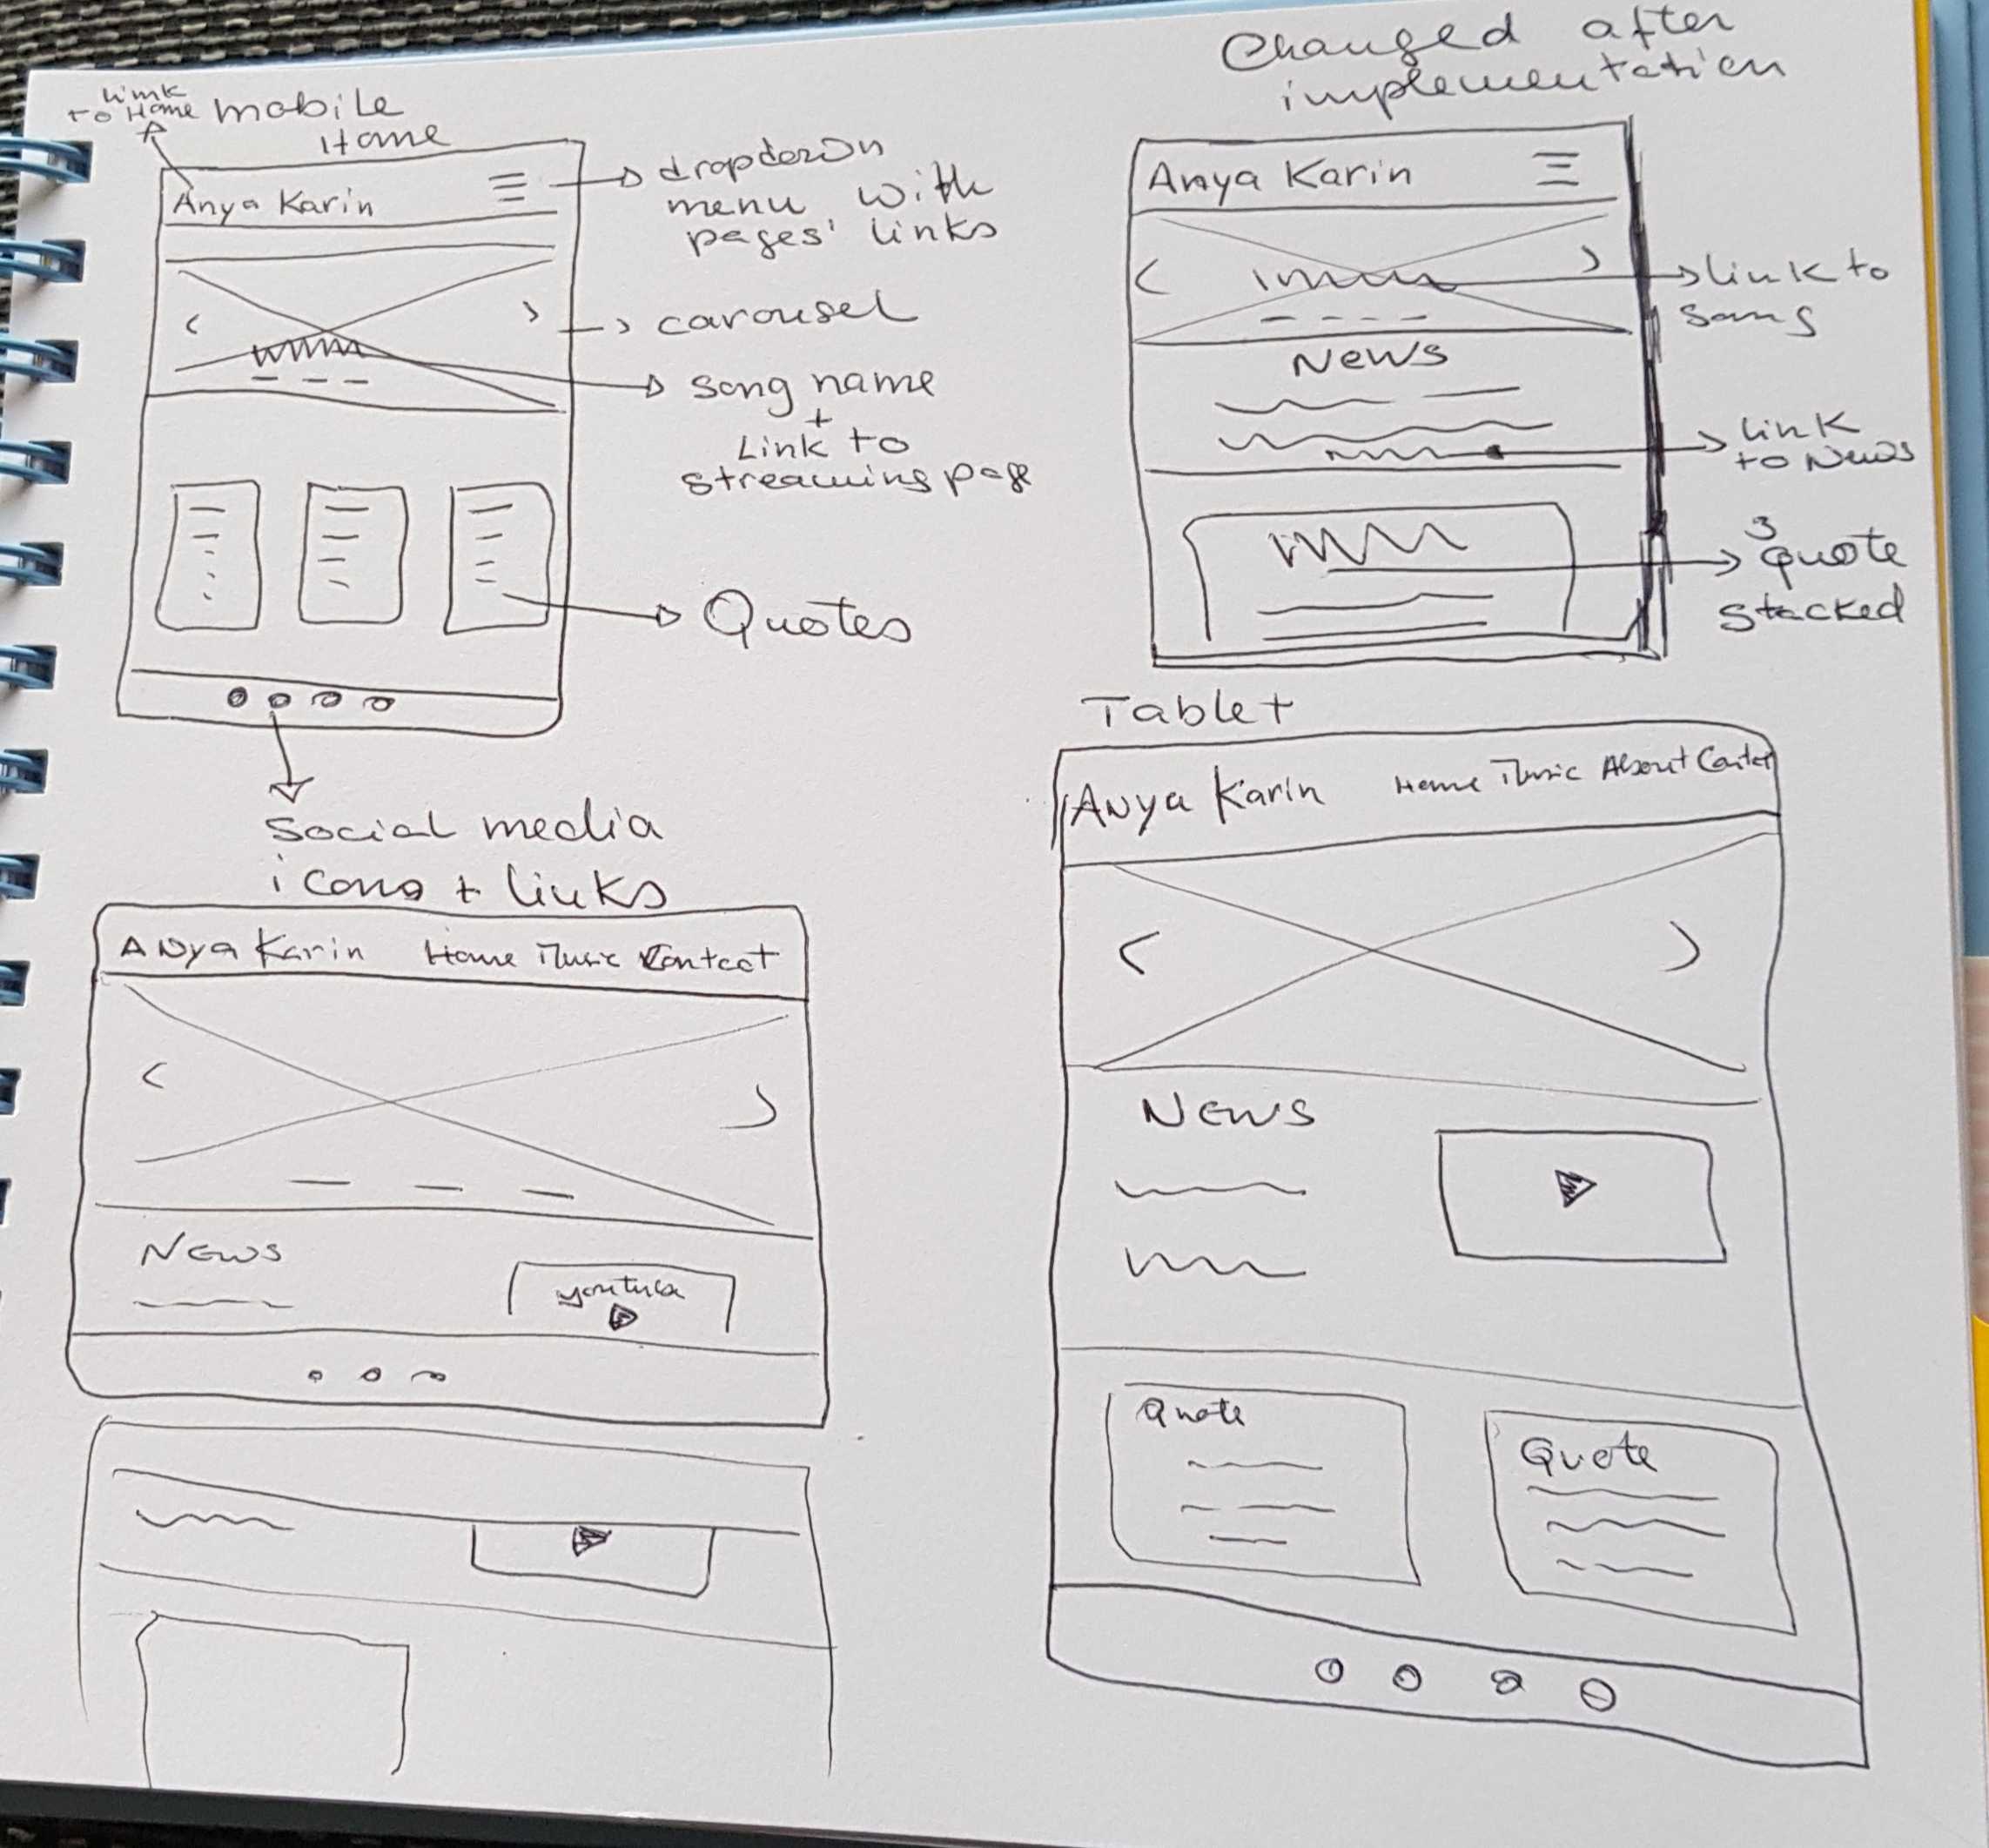 Link
to Home
mobile
Home
Anya Karin
dropdown
menu with
pages' links
carousel
song name
+
Link to
streaming page
Quotes
social media
icons + links
Changed after
implementation
Anya Karin
link to
song
News
link
to News
3
quote
stacked
Tablet
Anya Karin Home Music About Contact
News
Quote
Quote
Anya Karin Home Music Contact
News
youtube